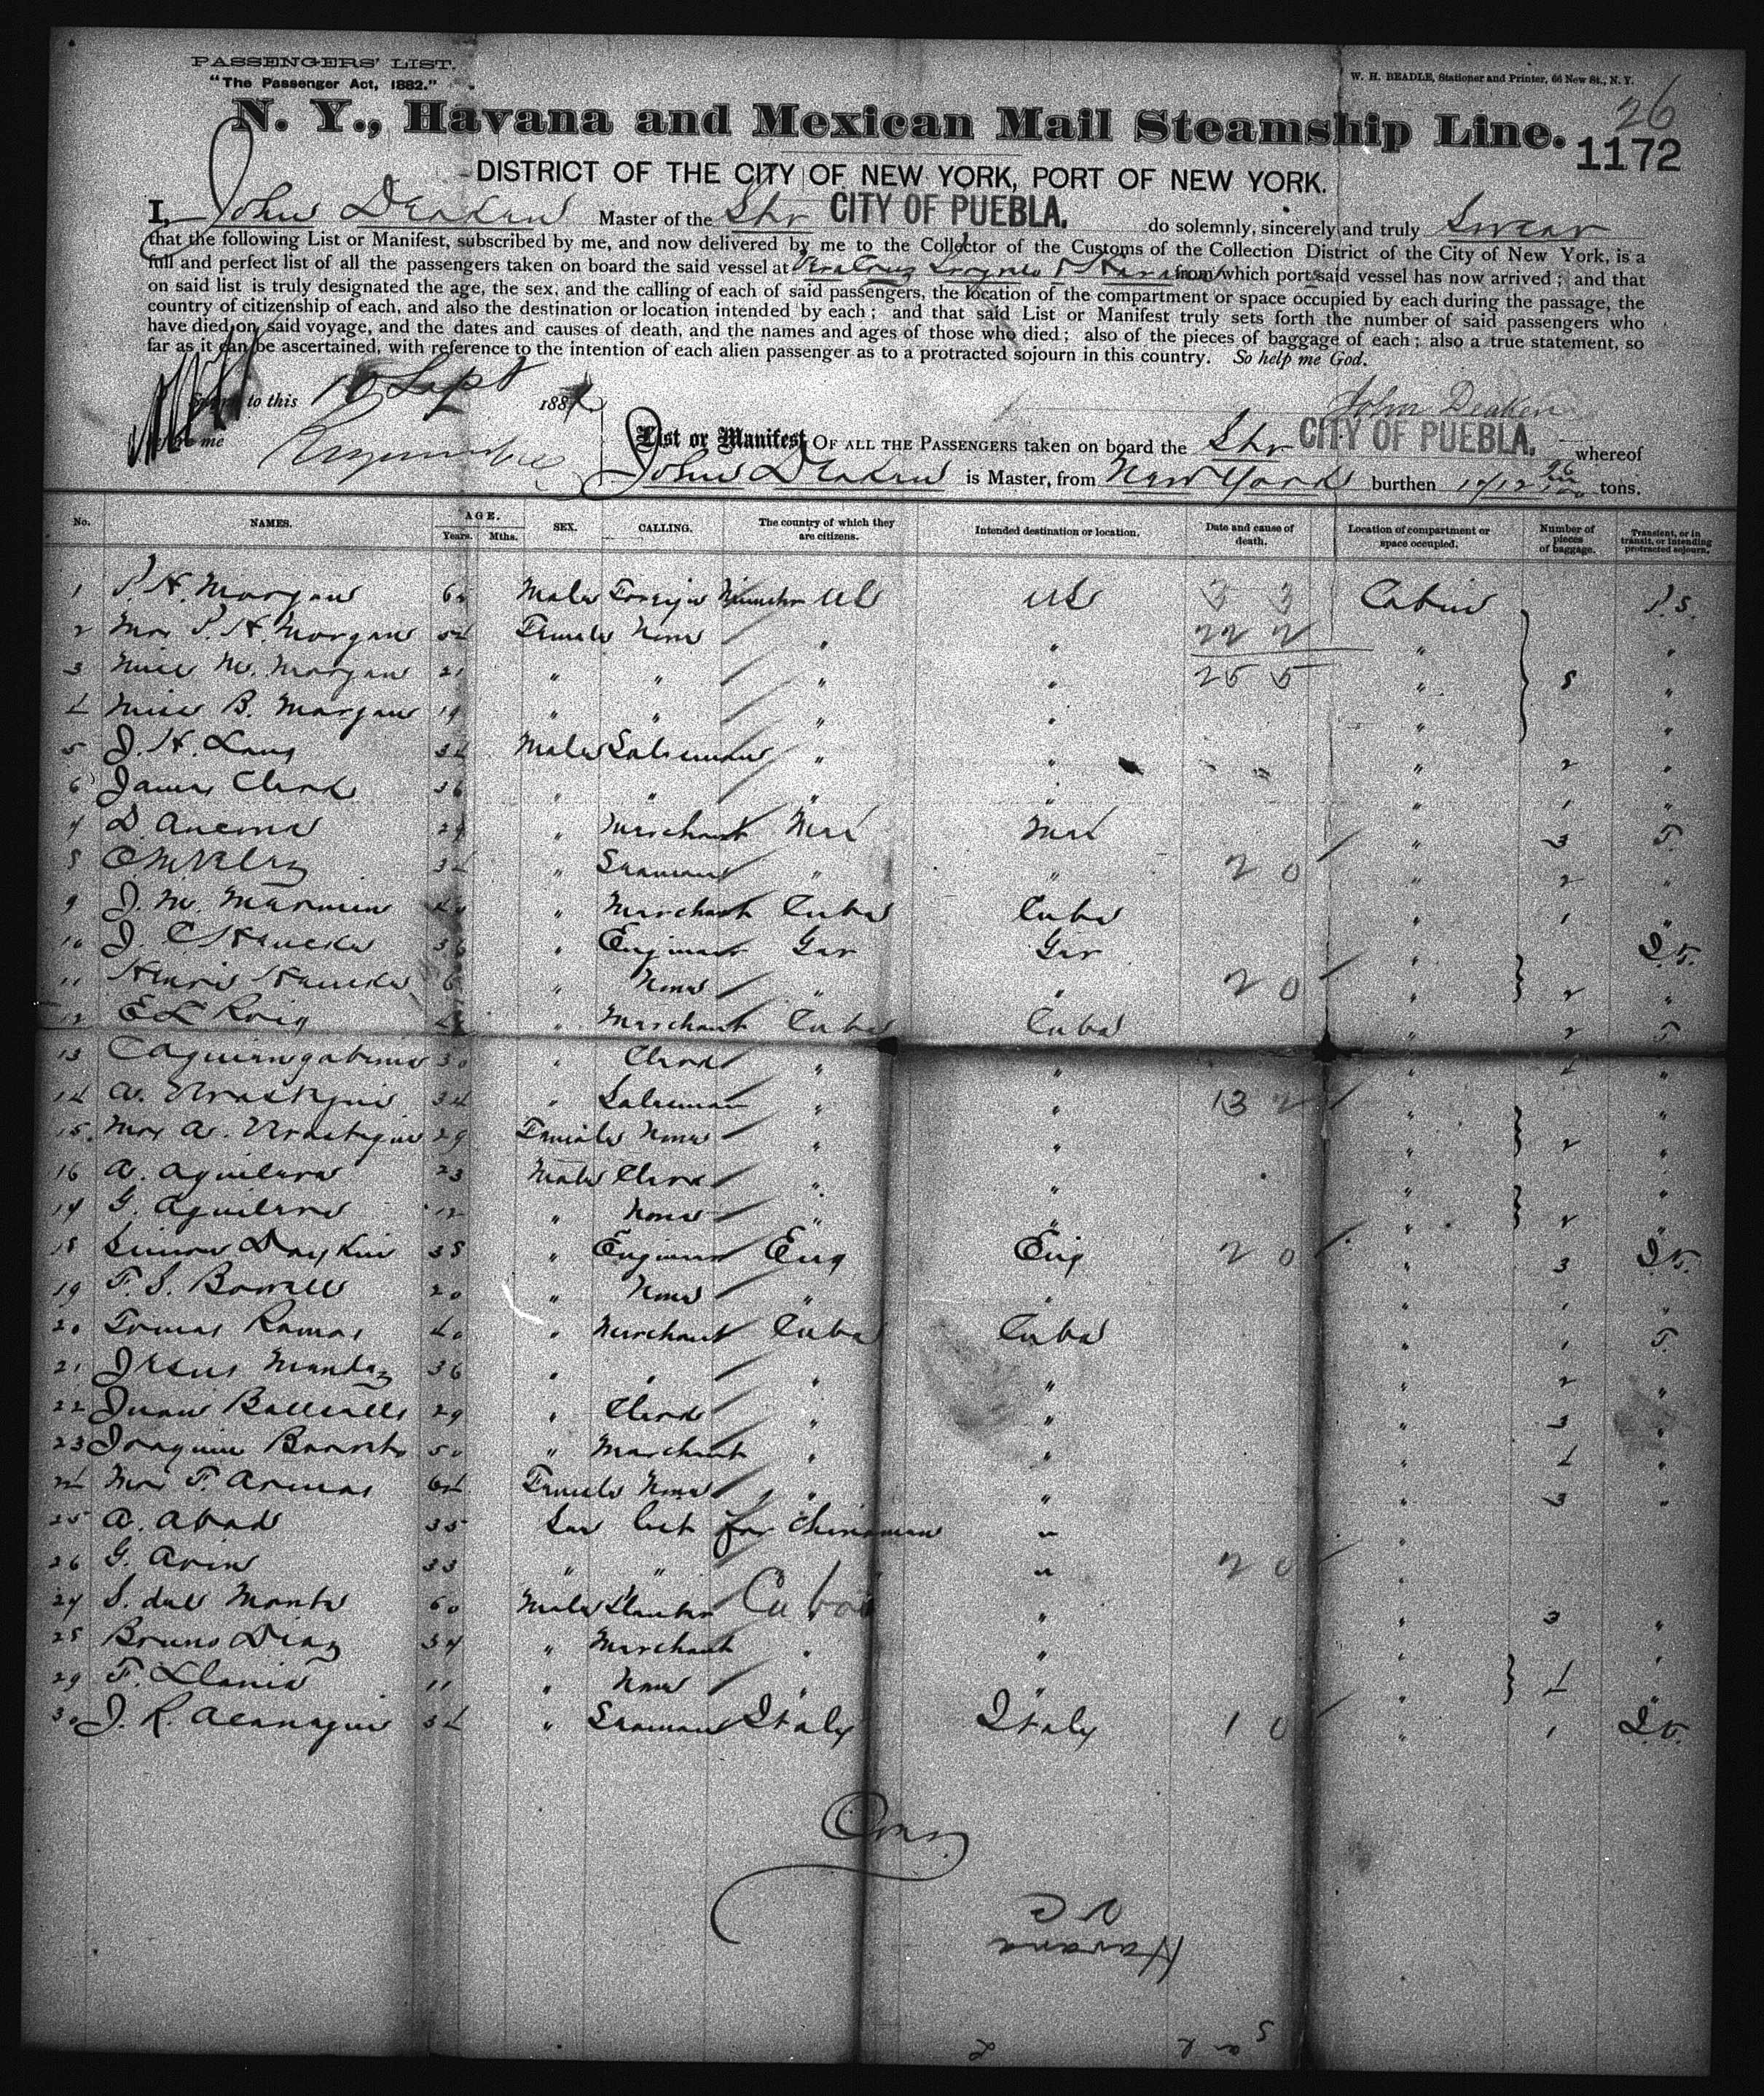 PASSENGERS' LIST.
"The Passenger Act, 1882."
W. H. BEADLE, Stationer and Printer, 66 New St., N. Y.
26
N. Y., Havana and Mexican Mail Steamship Line.
1172
DISTRICT OF THE CITY OF NEW YORK, PORT OF NEW YORK.
I, John Deaken Master of the Str CITY OF PUEBLA. do solemnly, sincerely and truly Swear
that the following List or Manifest, subscribed by me, and now delivered by me to the Collector of the Customs of the Collection District of the City of New York, is a
full and perfect list of all the passengers taken on board the said vessel at Vera Cruz from which port said vessel has now arrived; and that
on said list is truly designated the age, the sex, and the calling of each of said passengers, the location of the compartment or space occupied by each during the passage, the
country of citizenship of each, and also the destination or location intended by each; and that said List or Manifest truly sets forth the number of said passengers who
have died on said voyage, and the dates and causes of death, and the names and ages of those who died; also of the pieces of baggage of each; also a true statement, so
far as it can be ascertained, with reference to the intention of each alien passenger as to a protracted sojourn in this country. So help me God.
to this 10 Sept 188
before me
John Deaken
List or Manifest OF ALL THE PASSENGERS taken on board the Str CITY OF PUEBLA. whereof
John Deaken is Master, from New York burthen tons.
No. NAMES. AGE. Years. Mths. SEX. CALLING. The country of which they are citizens. Intended destination or location. Date and cause of death. Location of compartment or space occupied. Number of pieces of baggage. Transient, or in transit, or intending protracted sojourn.
1 P. H. Morgan Male Foreign Minister US US 3 3 Cabin P.S.
2 Mrs P. H. Morgan 54 Female None " " 22 2 " "
3 Miss M. Morgan 21 " " " " 25 5 " 5 "
4 Miss B. Morgan 19 " " " " " "
5 J. H. Lang 34 Male Salesman " " " 2 "
6 James Clark 36 " " " " " 1 "
7 D. 29 " Merchant Mex Mex " 3 T.
8 34 " Seaman " " 2 0 " 2 "
9 J. M. " Merchant Cuba Cuba " 1 "
10 J. C 36 " Engineer Ger Ger " I.T.
11 6 " None " " 2 0 " 2 "
12 E L Roig " Merchant Cuba Cuba " 2 T
13 30 " Clerk " " " "
14 A. 34 " Salesman " " 13 2 " "
15 Mrs A. 29 Female None " " " 2 "
16 A. Aguilera 23 Male Clerk " " " "
17 G. Aguilera 12 " None " " " 2 "
18 Simon Daykin 38 " Engineer Eng Eng 2 0 " 3 I.T.
19 F. S. 20 " None " " " 1 "
20 Tomas Ramos 40 " Merchant Cuba Cuba " 1 T.
21 Jesus 36 " " " " " 2 "
22 Juan 29 " Clerk " " " 3 "
23 Joaquin 50 " Merchant " " " 4 "
24 Mrs F. Armas 64 Female None " " " 3 "
25 A. Abad 35 See list for Chinaman " "
26 G. 33 " " " 2 0 "
27 S. del Monte 60 Male Planter Cuba " " 3 "
28 Bruno Diaz 37 " Merchant " " " "
29 F. 11 " None " " " 4 "
30 J. R. 34 " Seaman Italy Italy 1 0 " 1 I.T.
Havana